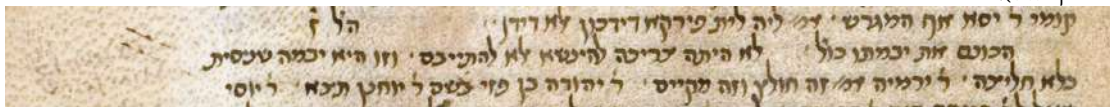 קומי ר' יסא אף המגרש · אמ' ליה לית פירקא דידכון לא דידן הל' ז
הכונס את יבמתו כול' לא היתה צריכה להינשא לא להתייבם · וזו היא יבמה
בלא חליצה · ר' ירמיה אמ' זה חולץ וזה מקיים · ר' יהודה בן פזי בשם ר' יוחנן ר' יוסי